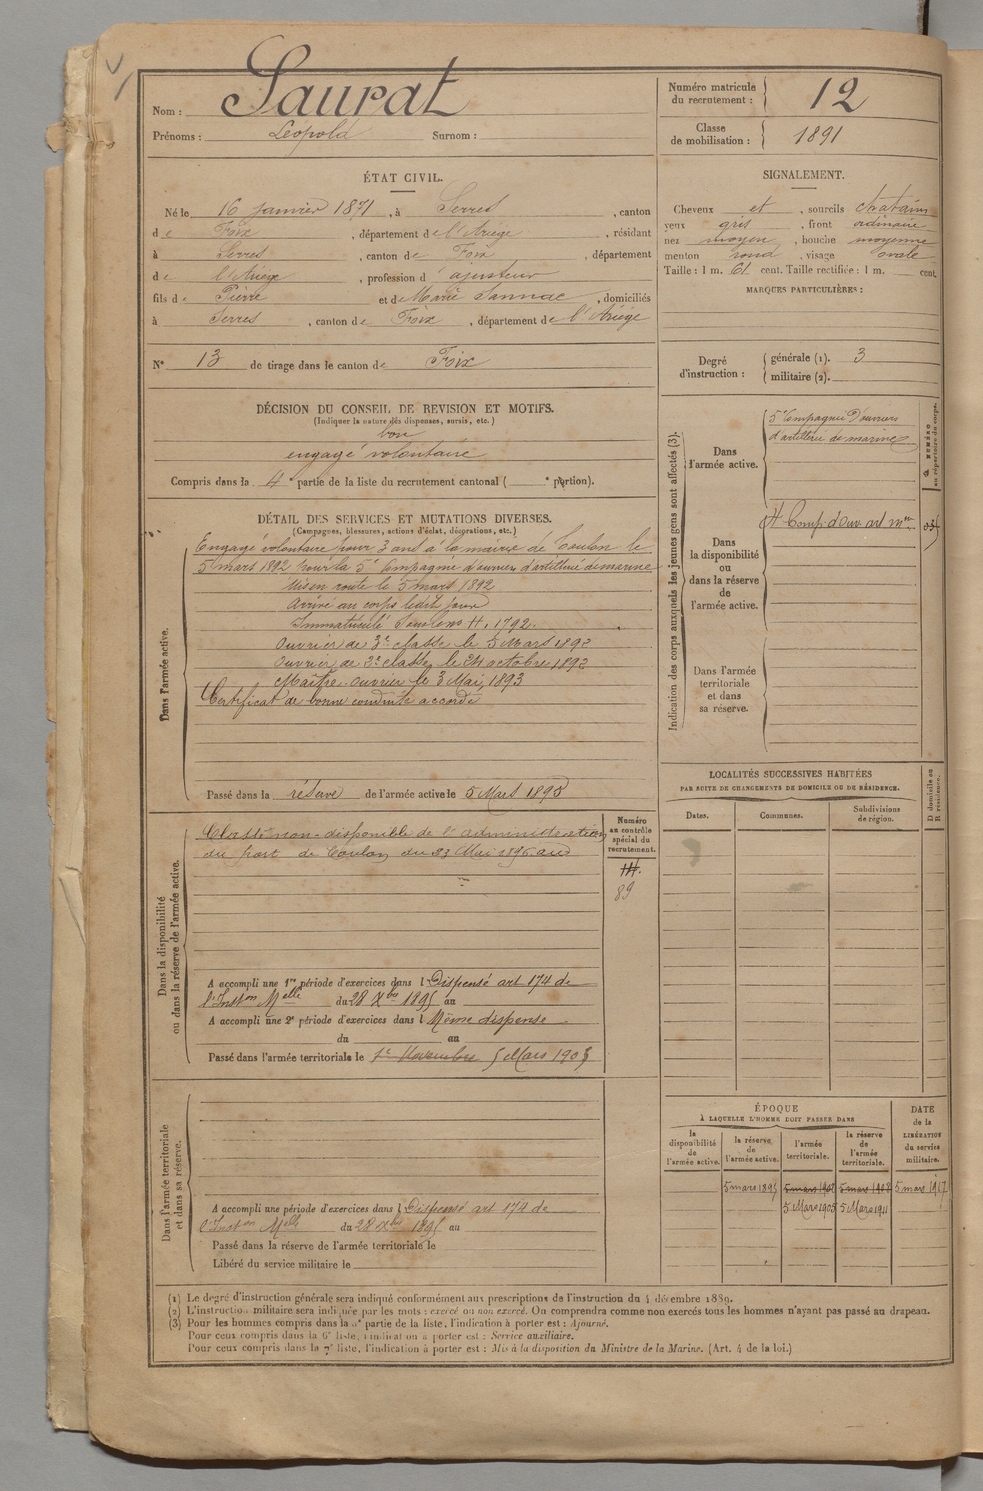 Nom : Saurat
Prénoms : Léopold Surnom :
Numéro matricule du recrutement : 12
Classe de mobilisation : 1891
ÉTAT CIVIL.
Né le 16 janvier 1871, à Serres, canton
de Foix, département de l'Ariège, résidant
à Serres, canton de Foix, département
de l'Ariège, profession d'ajusteur
fils de Pierre et de Marie Sannac, domiciliés
à Serres, canton de Foix, département de l'Ariège
N° 13 de tirage dans le canton de Foix
SIGNALEMENT.
Cheveux et, sourcils chatains
yeux gris, front ordinaire
nez moyen, bouche moyenne
menton rond, visage ovale
Taille : 1 m. 61 cent. Taille rectifiée : 1 m. cent.
MARQUES PARTICULIÈRES :
Degré d'instruction : générale (1). 3
militaire (2).
DÉCISION DU CONSEIL DE REVISION ET MOTIFS.
(Indiquer la nature des dispenses, sursis, etc.)
bon
engagé volontaire
Compris dans la 4e partie de la liste du recrutement cantonal ( e portion).
DÉTAIL DES SERVICES ET MUTATIONS DIVERSES.
(Campagnes, blessures, actions d'éclat, décorations, etc.)
Dans l'armée active.
Engagé volontaire pour 3 ans à la mairie de Toulon le
5 mars 1892 pour la 5e Compagnie d'ouvriers d'artillerie de marine
Mis en route le 5 mars 1892
Arrivé au corps ledit jour
Immatriculé sous le no H. 1792.
Ouvrier de 3e classe le 5 Mars 1892
Ouvrier de 2e classe le 24 octobre 1892
Maître-ouvrier le 3 Mai 1893
Certificat de bonne conduite accordé
Passé dans la réserve de l'armée active le 5 Mars 1895
Dans la disponibilité ou dans la réserve de l'armée active.
Classé non-disponible de l'administration
du port de Toulon du 23 Mai 1896 au
Numéro au contrôle spécial du recrutement.
89
A accompli une 1re période d'exercices dans l Dispensé art 174 de
l'Inston Melle du 28 Xbre 1895 au
A accompli une 2e période d'exercices dans l Même dispense
du au
Passé dans l'armée territoriale le 1er Novembre 5 Mars 1905
Dans l'armée territoriale et dans sa réserve.
A accompli une période d'exercices dans l Dispensé art 174 de
l'Inston Melle du 28 Xbre 1895 au
Passé dans la réserve de l'armée territoriale le
Libéré du service militaire le
Indication des corps auxquels les jeunes gens sont affectés (3).
Dans l'armée active.
5e Compagnie d'ouvriers
d'artillerie de marine
NUMÉRO au répertoire du corps.
Dans la disponibilité ou dans la réserve de l'armée active.
Comp. d'ouv. art. mne
Dans l'armée territoriale et dans sa réserve.
LOCALITÉS SUCCESSIVES HABITÉES
PAR SUITE DE CHANGEMENTS DE DOMICILE OU DE RÉSIDENCE.
D domicile ou R résidence.
Dates. Communes. Subdivisions de région.
ÉPOQUE
À LAQUELLE L'HOMME DOIT PASSER DANS
DATE de la LIBÉRATION du service militaire.
la disponibilité de l'armée active.
la réserve de l'armée active.
l'armée territoriale.
la réserve de l'armée territoriale.
5 mars 1895 5 mars 1902 5 mars 1908 5 mars 1917
5 Mars 1905 5 Mars 1911
(1) Le degré d'instruction générale sera indiqué conformément aux prescriptions de l'instruction du 4 décembre 1889.
(2) L'instruction militaire sera indiquée par les mots : exercé ou non exercé. On comprendra comme non exercés tous les hommes n'ayant pas passé au drapeau.
(3) Pour les hommes compris dans la partie de la liste, l'indication à porter est : Ajourné.
Pour ceux compris dans la 6e liste, l'indication à porter est : Service auxiliaire.
Pour ceux compris dans la 7e liste, l'indication à porter est : Mis à la disposition du Ministre de la Marine. (Art. 4 de la loi.)